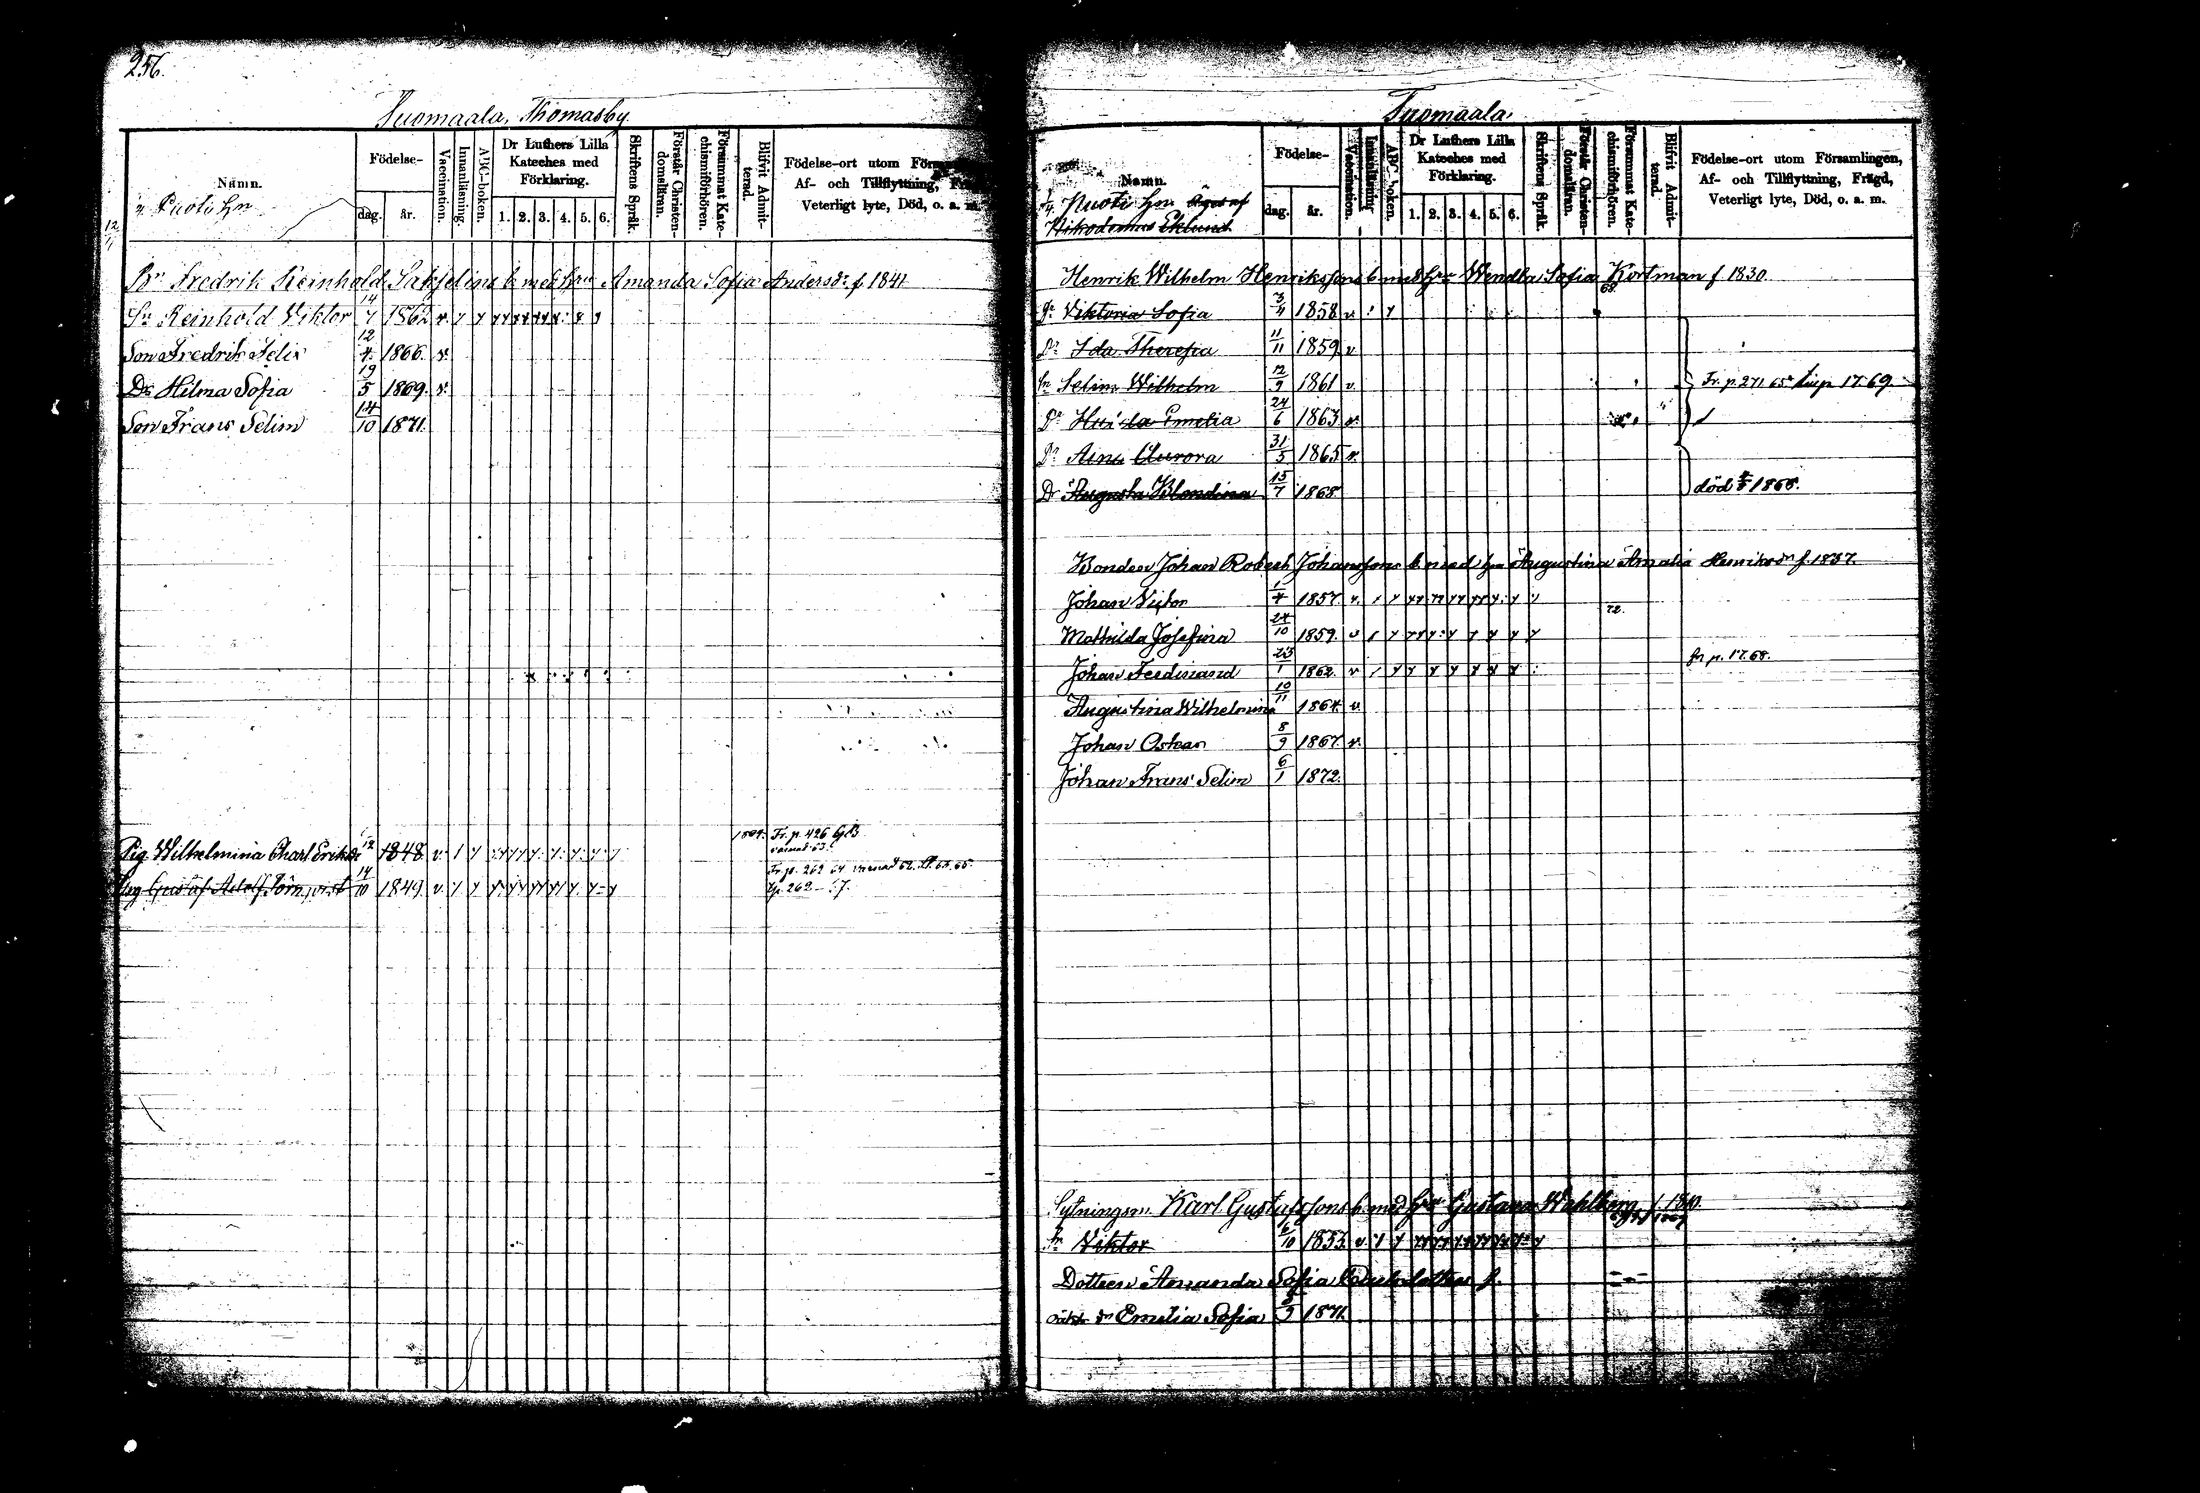 256.
Tuomaala, Thomasby
Namn.
Födelse-
dag.
år.
Vaccination.
Innanläsning.
ABC-boken.
Dr Luthers Lilla
Kateches med
Förklaring.
1. 2. 3. 4. 5. 6.
Skriftens Språk.
Förstår Christen-
domsläran.
Försummat Kate-
chismiförhören.
Blifvit Admit-
terad.
Födelse-ort utom
Af- och Tillflyttning,
Veterligt lyte, Död, o. a. m.
Puoti hm
12/1
Bn Fredrik Reinhold b. med hru Amanda Sofia Andersdr f. 1841
Sn Reinhold Viktor 14/7 1862 v.
Son Fredrik Felix 12/4 1866. v.
Dr Hilma Sofia 19/5 1869. v.
Son Frans Selim 14/10 1871.
Pig. Wilhelmina Charl. Eriksdr 1848 v. Fr. p. 426 GB
Gustaf Adolf 14/10 1849. v. Fr. p. 269 64
Tuomaala.
Namn.
Födelse-
dag.
år.
Vaccination.
Innanläsning
ABC-boken.
Dr Luthers Lilla
Kateches med
Förklaring.
1. 2. 3. 4. 5. 6.
Skriftens Språk.
Förstår Christen-
domsläran.
Försummat Kate-
chismiförhören.
Blifvit Admit-
terad.
Födelse-ort utom Församlingen,
Af- och Tillflyttning, Frägd,
Veterligt lyte, Död, o. a. m.
Nuoti hm Äges af
Nikodemus Eklund.
Henrik Wilhelm Henrikssons b. med hru Wendla Sofia Kortman f. 1830.
68.
Dr Viktoria Sofia 3/4 1858 v
Dr Ida Theresia 11/11 1859 v
Sn Selim Wilhelm 12/9 1861 v. Fr. p. 271 65 17 69
Dr Emelia 24/6 1863 v.
Dr Aina Aurora 31/5 1865 v.
Dr Augusta Blondina 15/7 1868 död 1868.
Bonden Johan Robert Johanssons b. med hru Augustina Amalia Henriksdr f. 1837.
Johan Victor 1/4 1857. v.
72.
Mathilda Josefina 24/10 1859. v
Johan Ferdinand 23/1 1862. v fr p. 17. 68.
Augustina Wilhelmina 10/11 1864. v.
Johan Oskar 8/9 1867. v.
Johan Frans Selim 6/1 1872.
Sytningsm. Karl Gustafssons b. med hru Gustava Wahlberg f. 1810.
Sn Viktor 6/10 1853. v
Dottren Amanda Sofia f.
dr Emelia Sofia 1871